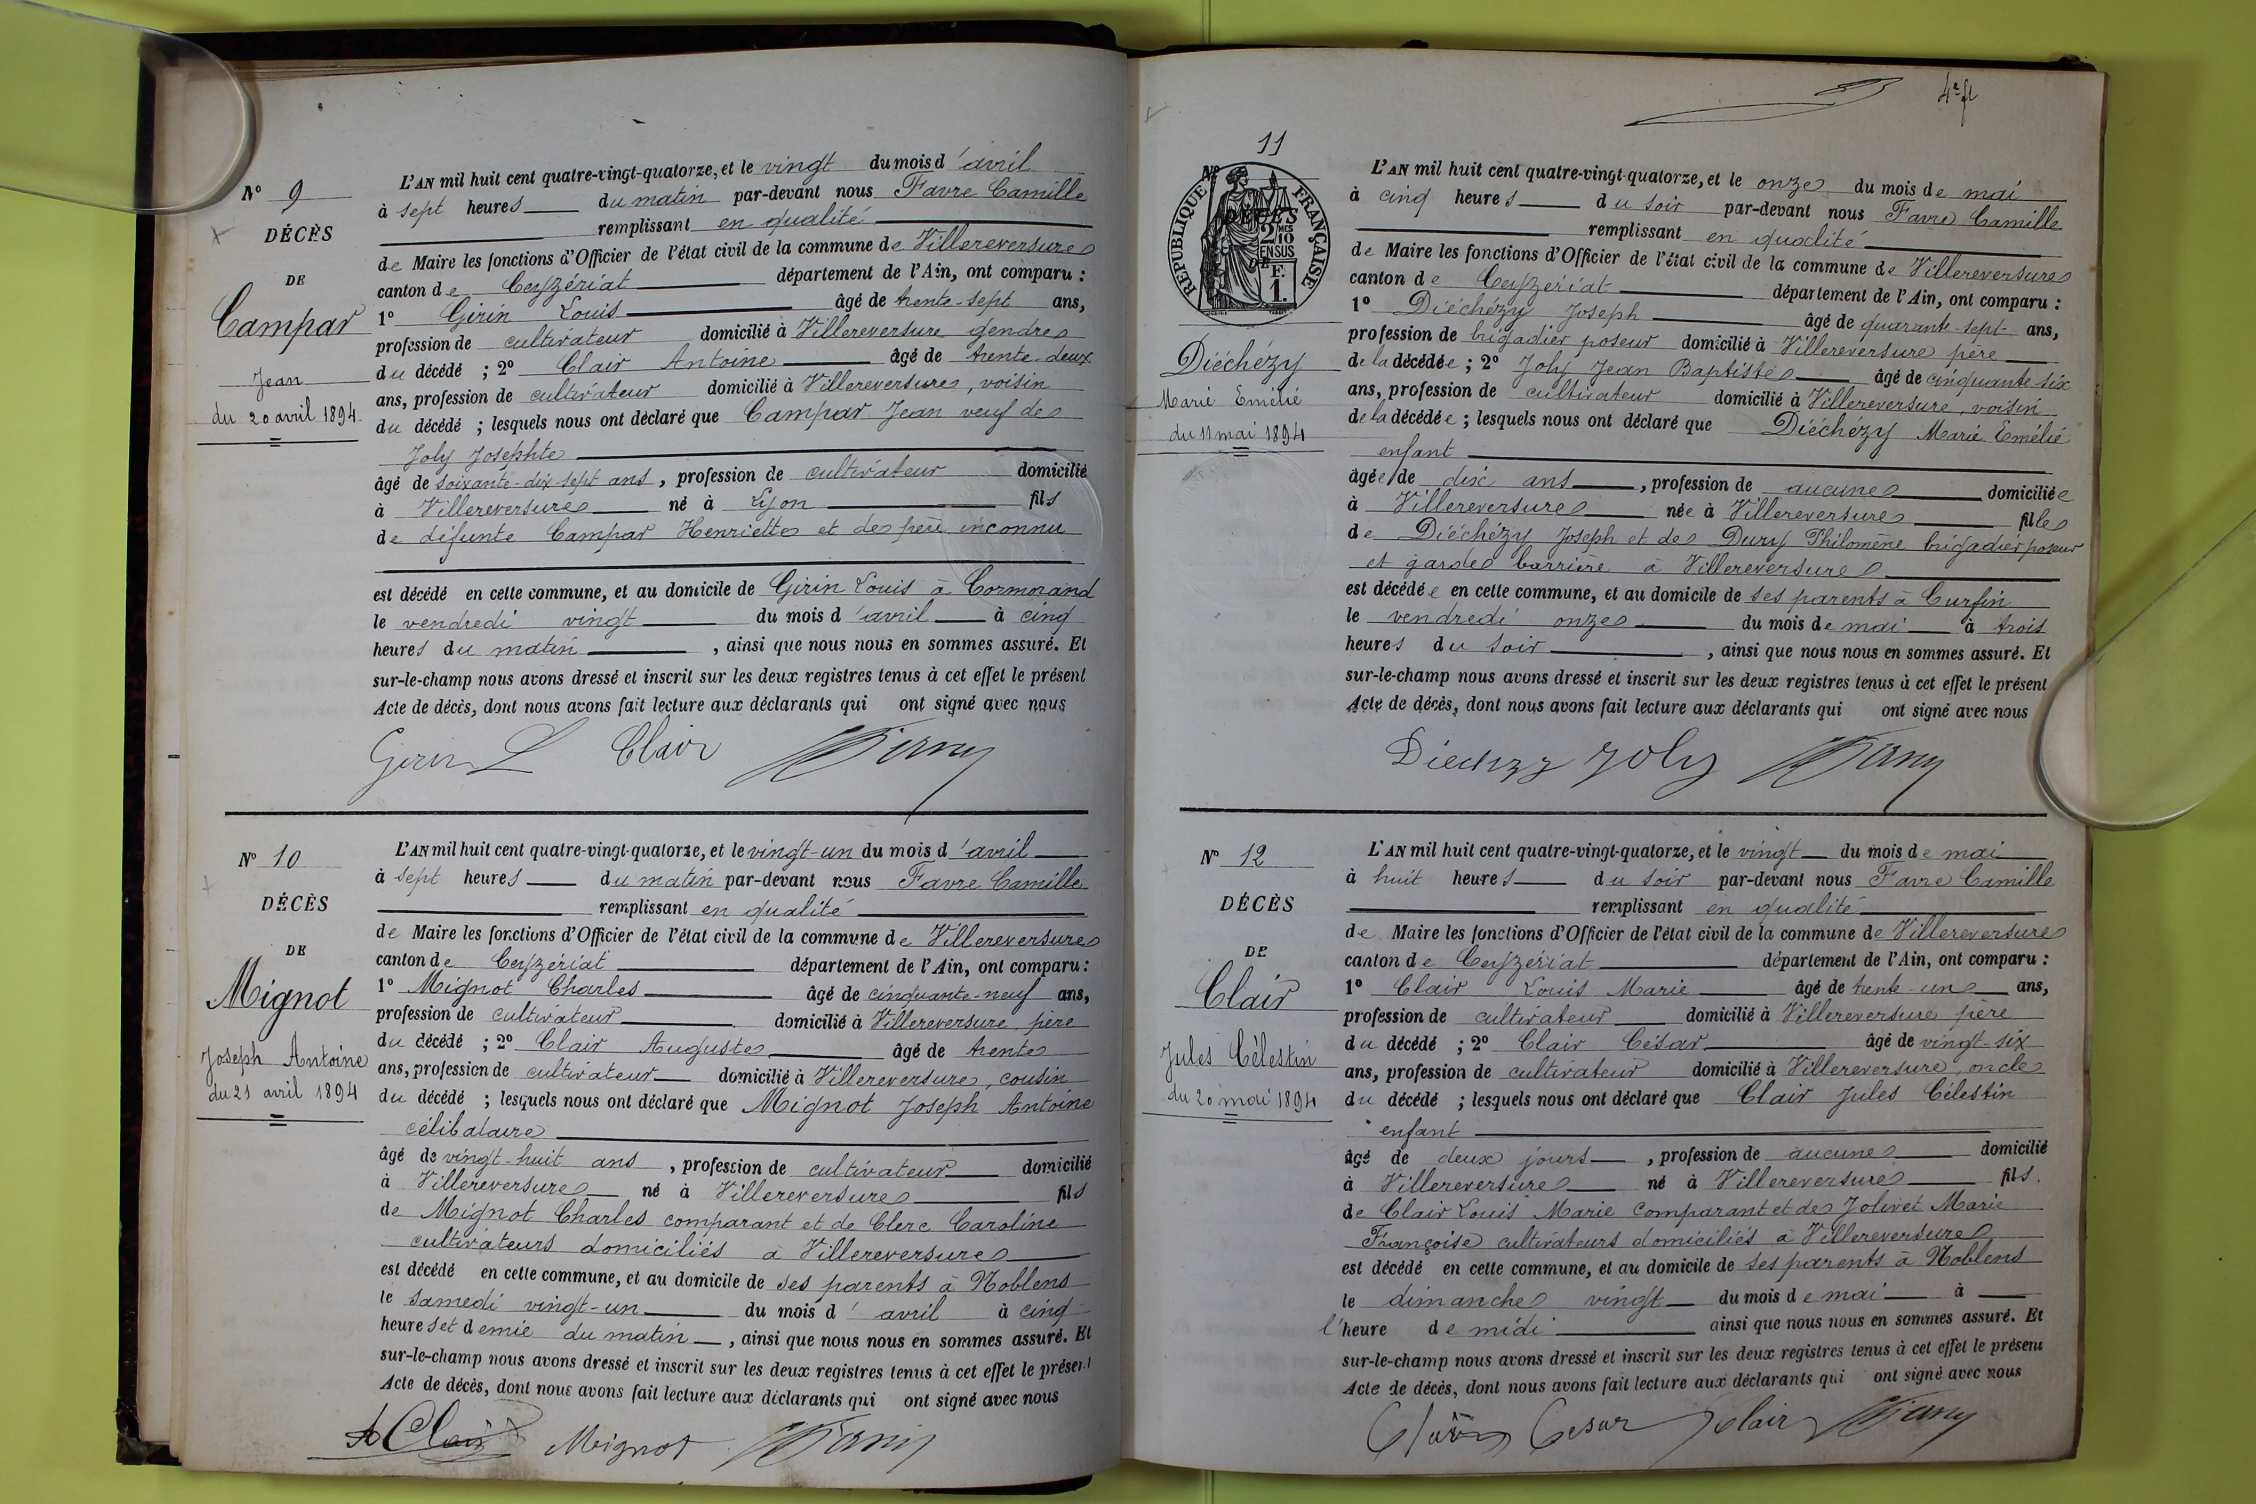 N° 9
DÉCÈS
DE
Campar
Jean
du 20 avril 1894
L'AN mil huit cent quatre-vingt-quatorze, et le vingt du mois d'avril
à sept heures du matin par-devant nous Favre Camille
remplissant en qualité
de Maire les fonctions d'Officier de l'état civil de la commune de Villereversure
canton de Ceyzériat département de l'Ain, ont comparu :
1° Girin Louis âgé de trente-sept ans,
profession de cultivateur domicilié à Villereversure gendre
du décédé ; 2° Clair Antoine âgé de trente-deux
ans, profession de cultivateur domicilié à Villereversure, voisin
du décédé ; lesquels nous ont déclaré que Campar Jean veuf de
Joly Josephte
âgé de soixante-dix-sept ans, profession de cultivateur domicilié
à Villereversure né à Lyon fils
de défunte Campar Henriette et de père inconnu
est décédé en cette commune, et au domicile de Girin Louis à Cormorand
le vendredi vingt du mois d'avril à cinq
heures du matin, ainsi que nous nous en sommes assuré. Et
sur-le-champ nous avons dressé et inscrit sur les deux registres tenus à cet effet le présent
Acte de décès, dont nous avons fait lecture aux déclarants qui ont signé avec nous
Girin L Clair
N° 10
DÉCÈS
DE
Mignot
Joseph Antoine
du 21 avril 1894
L'AN mil huit cent quatre-vingt-quatorze, et le vingt-un du mois d'avril
à sept heures du matin par-devant nous Favre Camille
remplissant en qualité
de Maire les fonctions d'Officier de l'état civil de la commune de Villereversure
canton de Ceyzériat département de l'Ain, ont comparu :
1° Mignot Charles âgé de cinquante-neuf ans,
profession de cultivateur domicilié à Villereversure père
du décédé ; 2° Clair Auguste âgé de trente
ans, profession de cultivateur domicilié à Villereversure, cousin
du décédé ; lesquels nous ont déclaré que Mignot Joseph Antoine
célibataire
âgé de vingt-huit ans, profession de cultivateur domicilié
à Villereversure né à Villereversure fils
de Mignot Charles comparant et de Clerc Caroline
cultivateurs domiciliés à Villereversure
est décédé en cette commune, et au domicile de ses parents à Noblens
le samedi vingt-un du mois d'avril à cinq
heures et demie du matin, ainsi que nous nous en sommes assuré. Et
sur-le-champ nous avons dressé et inscrit sur les deux registres tenus à cet effet le présent
Acte de décès, dont nous avons fait lecture aux déclarants qui ont signé avec nous
A Clair Mignot
4e ft
11
N°
RÉPUBLIQUE FRANÇAISE
DÉCÈS
2 MES
10
EN SUS
DE
F.
1.
Diéchézy
Marie Emélie
du 11 mai 1894
L'AN mil huit cent quatre-vingt-quatorze, et le onze du mois de mai
à cinq heures du soir par-devant nous Favre Camille
remplissant en qualité
de Maire les fonctions d'Officier de l'état civil de la commune de Villereversure
canton de Ceyzériat département de l'Ain, ont comparu :
1° Diéchézy Joseph âgé de quarante-sept ans,
profession de brigadier poseur domicilié à Villereversure père
de la décédée ; 2° Joly Jean Baptiste âgé de cinquante-six
ans, profession de cultivateur domicilié à Villereversure, voisin
de la décédée ; lesquels nous ont déclaré que Diéchézy Marie Emélie
enfant
âgée de dix ans, profession de aucune domiciliée
à Villereversure née à Villereversure fille
de Diéchézy Joseph et de Dury Philomène brigadier poseur
et garde barrière à Villereversure
est décédée en cette commune, et au domicile de ses parents à Curfin
le vendredi onze du mois de mai à trois
heures du soir, ainsi que nous nous en sommes assuré. Et
sur-le-champ nous avons dressé et inscrit sur les deux registres tenus à cet effet le présent
Acte de décès, dont nous avons fait lecture aux déclarants qui ont signé avec nous
Joly
N° 12
DÉCÈS
DE
Clair
Jules Célestin
du 20 mai 1894
L'AN mil huit cent quatre-vingt-quatorze, et le vingt du mois de mai
à huit heures du soir par-devant nous Favre Camille
remplissant en qualité
de Maire les fonctions d'Officier de l'état civil de la commune de Villereversure
canton de Ceyzériat département de l'Ain, ont comparu :
1° Clair Louis Marie âgé de trente-un ans,
profession de cultivateur domicilié à Villereversure père
du décédé ; 2° Clair César âgé de vingt-six
ans, profession de cultivateur domicilié à Villereversure, oncle
du décédé ; lesquels nous ont déclaré que Clair Jules Célestin
enfant
âgé de deux jours, profession de aucune domicilié
à Villereversure né à Villereversure fils
de Clair Louis Marie comparant et de Jolivet Marie
Françoise cultivateurs domiciliés à Villereversure
est décédé en cette commune, et au domicile de ses parents à Noblens
le dimanche vingt du mois de mai à
l'heure de midi ainsi que nous nous en sommes assuré. Et
sur-le-champ nous avons dressé et inscrit sur les deux registres tenus à cet effet le présent
Acte de décès, dont nous avons fait lecture aux déclarants qui ont signé avec nous
Clair Cesar Clair